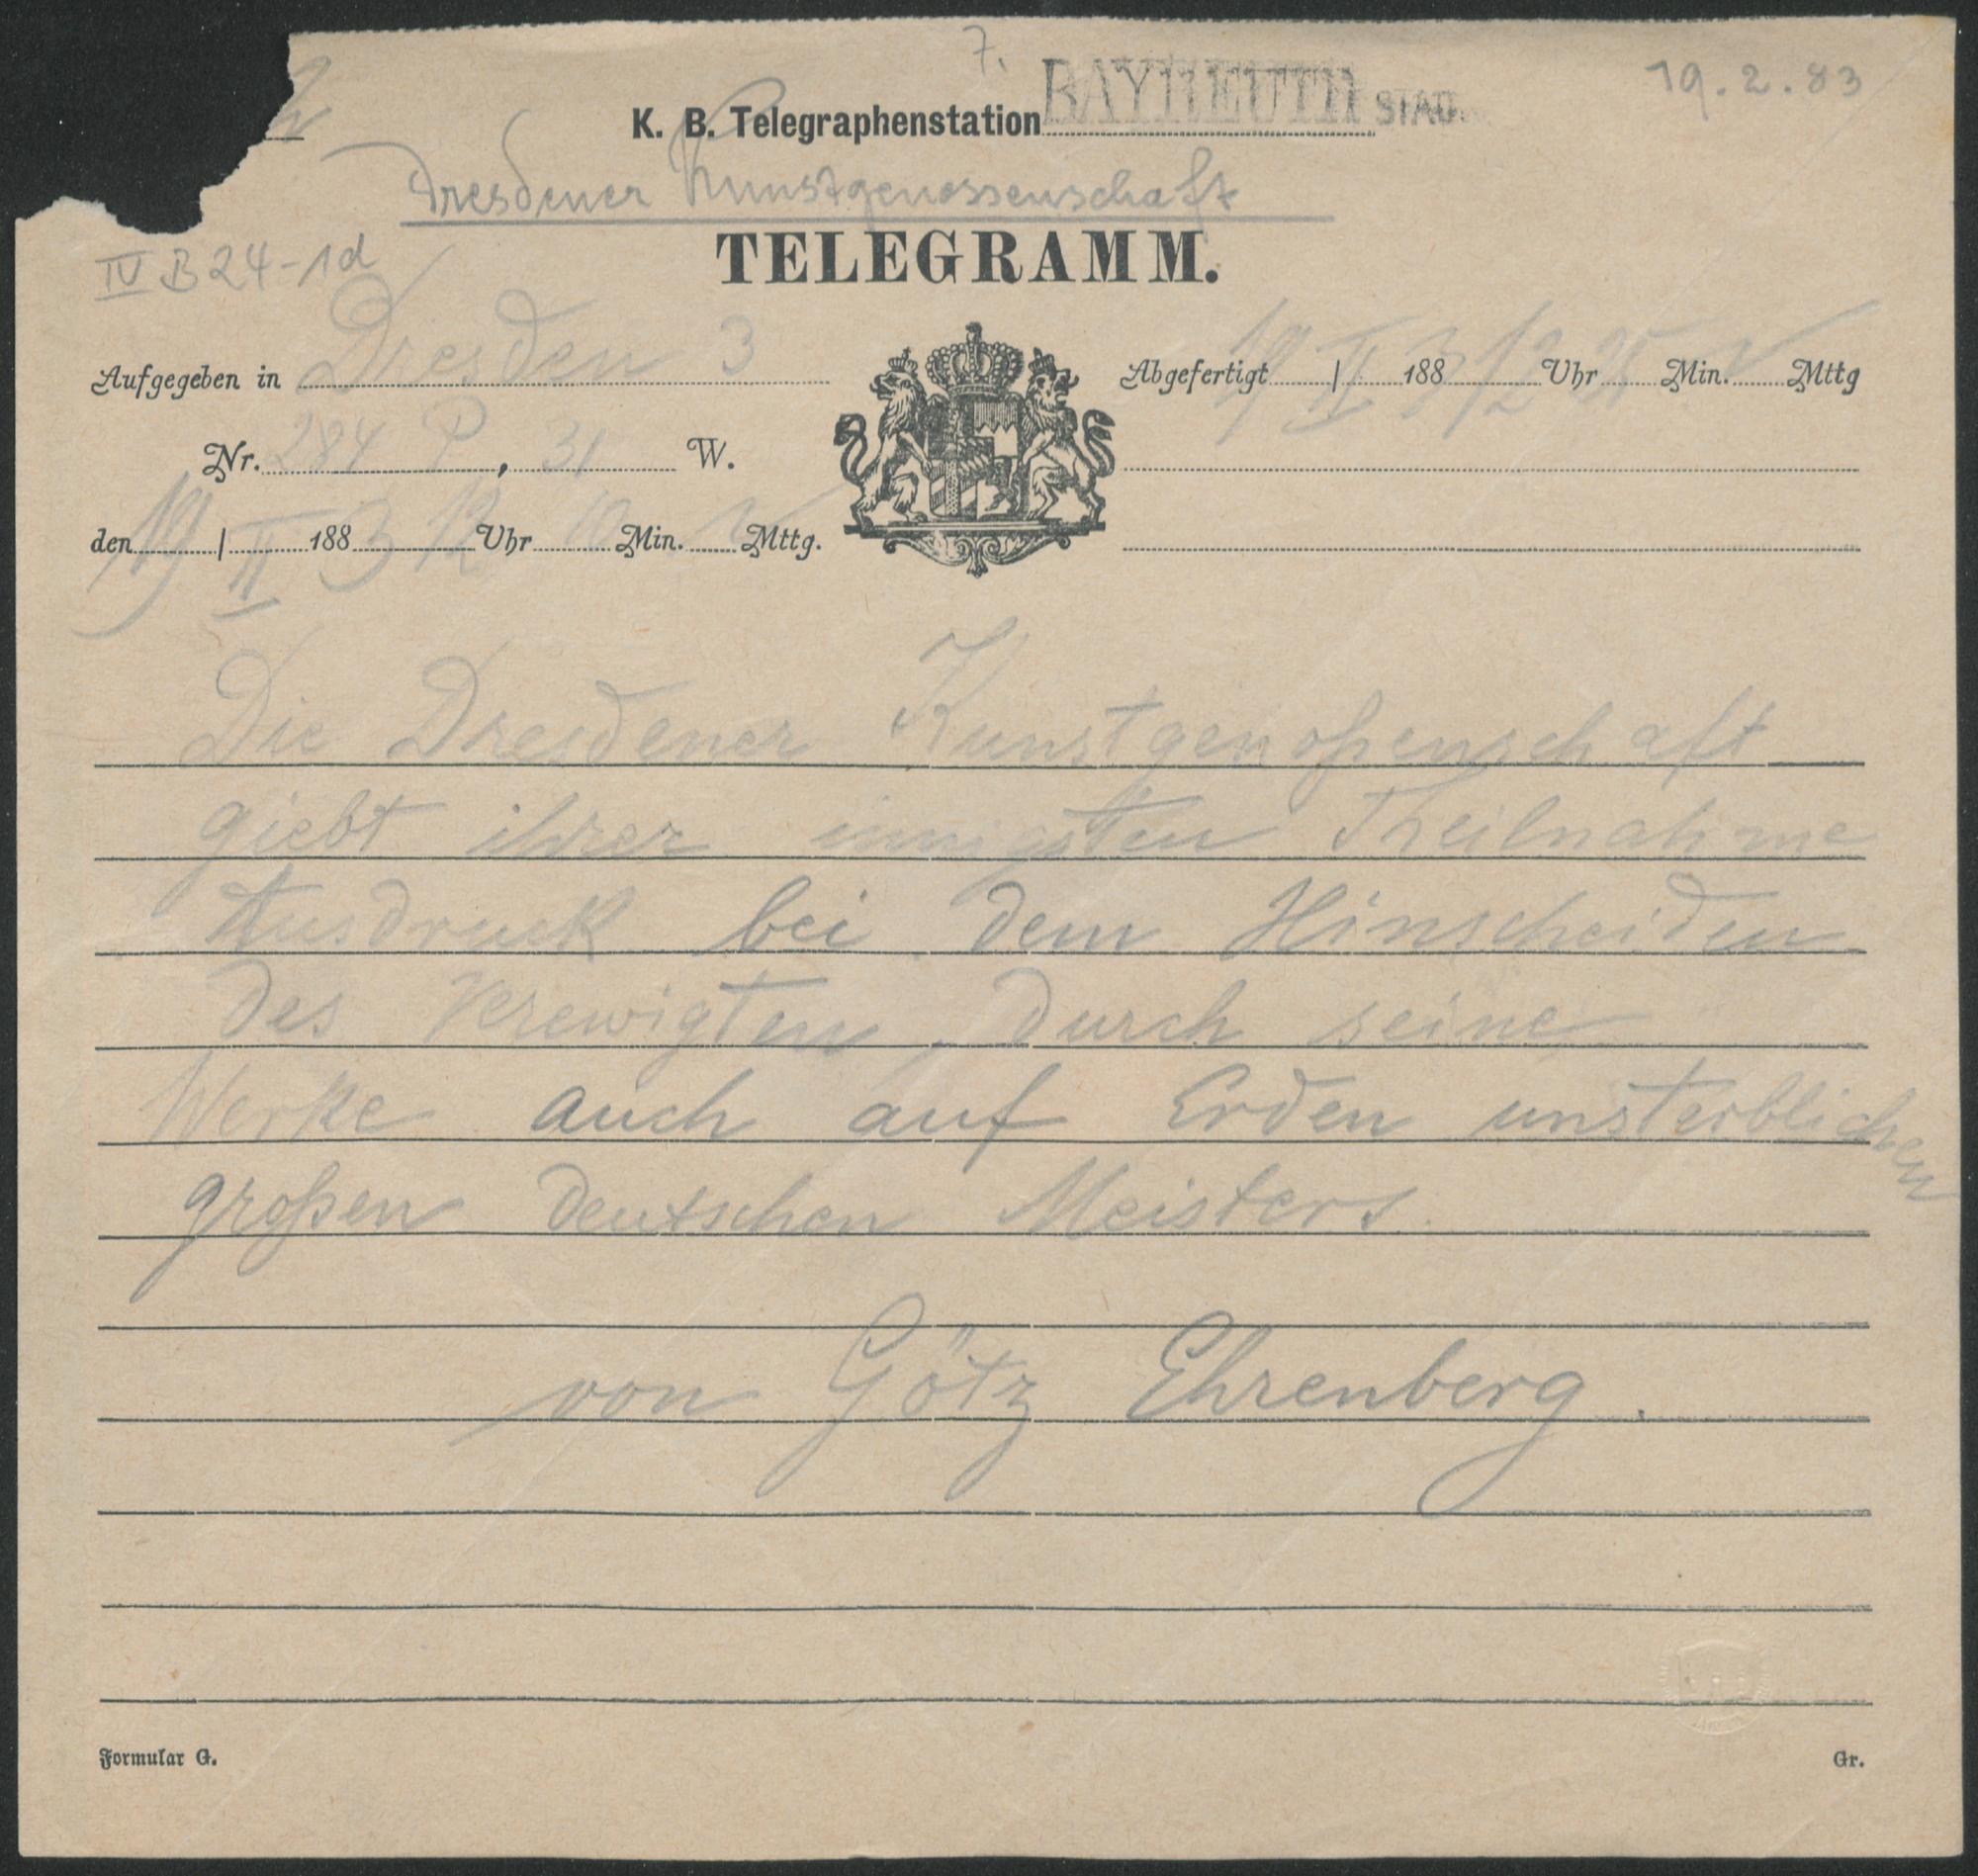 7.
19.2.83
K. B. Telegraphenstation BAYREUTH STAD
Dresdener Kunstgenossenschaft
TELEGRAMM.
IV B 24-1d
Aufgegeben in Dresden 3
Abgefertigt 19 / II 1883 12 Uhr 25 Min. V Mttg
Nr. 284 P, 31 W.
den 19 / II 1883 12 Uhr 10 Min. V Mttg.
Die Dresdener Kunstgenoßenschaft
giebt ihrer innigsten Theilnahme
Ausdruck bei dem Hinscheiden
des Verewigten, durch seine
Werke auch auf Erden unsterblichen
großen deutschen Meisters.
von Götz Ehrenberg.
Formular G.
Gr.